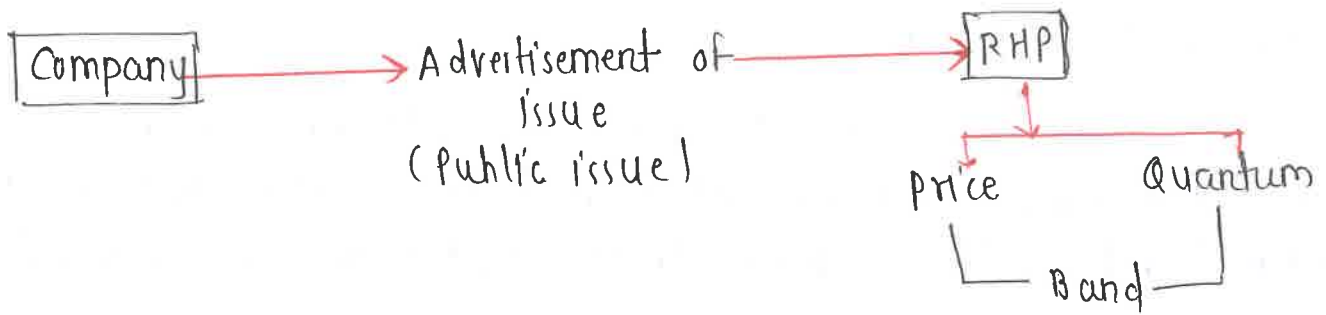 Company
Advertisement of
issue
(Public issue)
RHP
Price
Quantum
Band